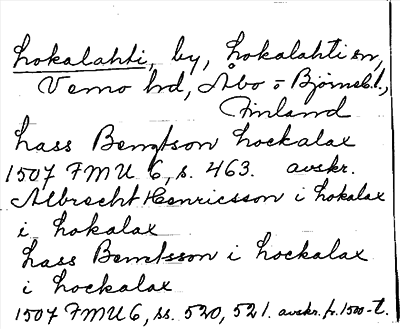 Lokalahti, by, Lokalahti sn,
Vemo hd, Åbo o Björneb.l.,
Finland
Lass Bemgtson Lockalax
1507 FMU 6, s. 463. avskr.
Albrecht Henricsson i Lokalax
i Lokalax
Lass Bemtsson i Lockalax
i Lockalax
1507 FMU 6, ss. 520, 521. avskr. fr. 1500-t.